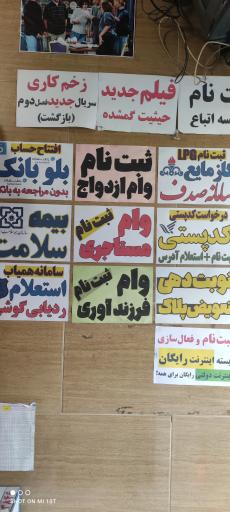 زخم کاری
سریال جدید فصل دوم
(بازگشت)
فیلم جدید
حیثیت گمشده
ثبت نام
اتباع
افتتاح حساب
بلو بانک
بدون مراجعه به بانک
ثبت نام
وام ازدواج
ثبت نام LPG
گاز مایع
سامانه صدف
بیمه
سلامت
وام
ثبت نام
مستاجری
درخواست کدپستی
کدپستی
ثبت نام + استعلام آدرس
سامانه همیاب
استعلام
ردیابی گوشی
وام
ثبت نام
فرزندآوری
نوبت دهی
تعویض پلاک
ثبت نام و فعال‌سازی
بسته اینترنت رایگان
اینترنت دولتی رایگان برای همه!
SHOT ON MI 10T